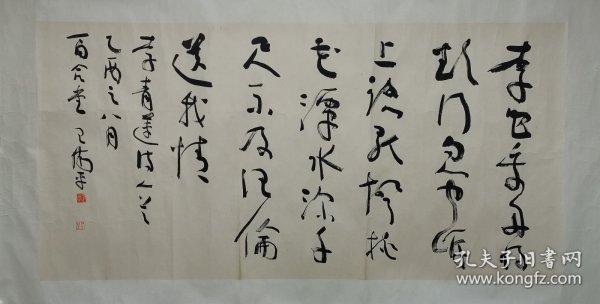 李白乘舟將
欲行忽聞岸
上踏歌聲桃
花潭水深千
尺不及汪倫
送我情
李青蓮詩一首
乙酉之八月
百合堂
孔夫子旧书网
www.kongfz.com